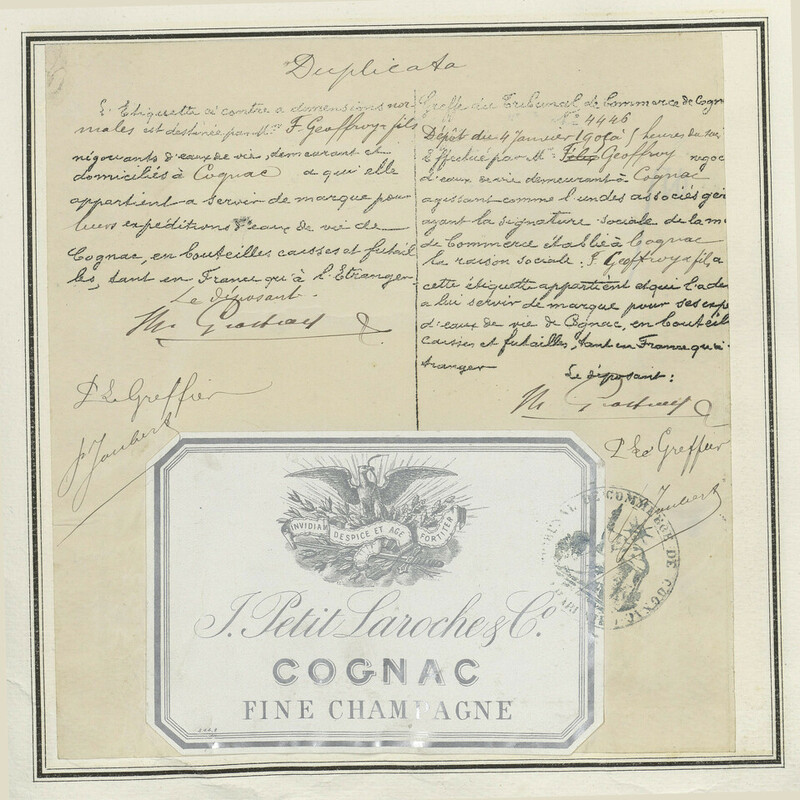 Duplicata
L'Etiquette ci contre a dimensions nor-
males est destinée par Mr. F. Geoffroy & fils
négociants d'eaux de vie, demeurant et
domiciliés à Cognac à qui elle
appartient a servir de marque pour
leurs expéditions d'eaux de vie de
Cognac, en bouteilles caisses et futail-
les, tant en France qu'à l'Etranger
Le déposant.
P. Le Greffier
Joubert
Greffe du Tribunal de Commerce de Cogn
No 4446
Dépôt du 4 Janvier 190 à 1 heures du soi
Effectué par Mr. Félix Geoffroy négoc
d'eaux de vie demeurant à Cognac
agissant comme l'un des associés gér
ayant la signature sociale de la m
de Commerce établie à Cognac
la raison sociale F. Geoffroy & fils, a
cette étiquette appartient et qui l'a de
a lui servir de marque pour ses exp
d'eaux de vie de Cognac, en bouteil
caisses et futailles, tant en France qu'à
tranger
Le déposant:
P. Le Greffier
Joubert
INVIDIAM DESPICE ET AGE FORTITER
J. Petit Laroche & Co.
COGNAC
FINE CHAMPAGNE
TRIBUNAL DE COMMERCE DE COGNAC